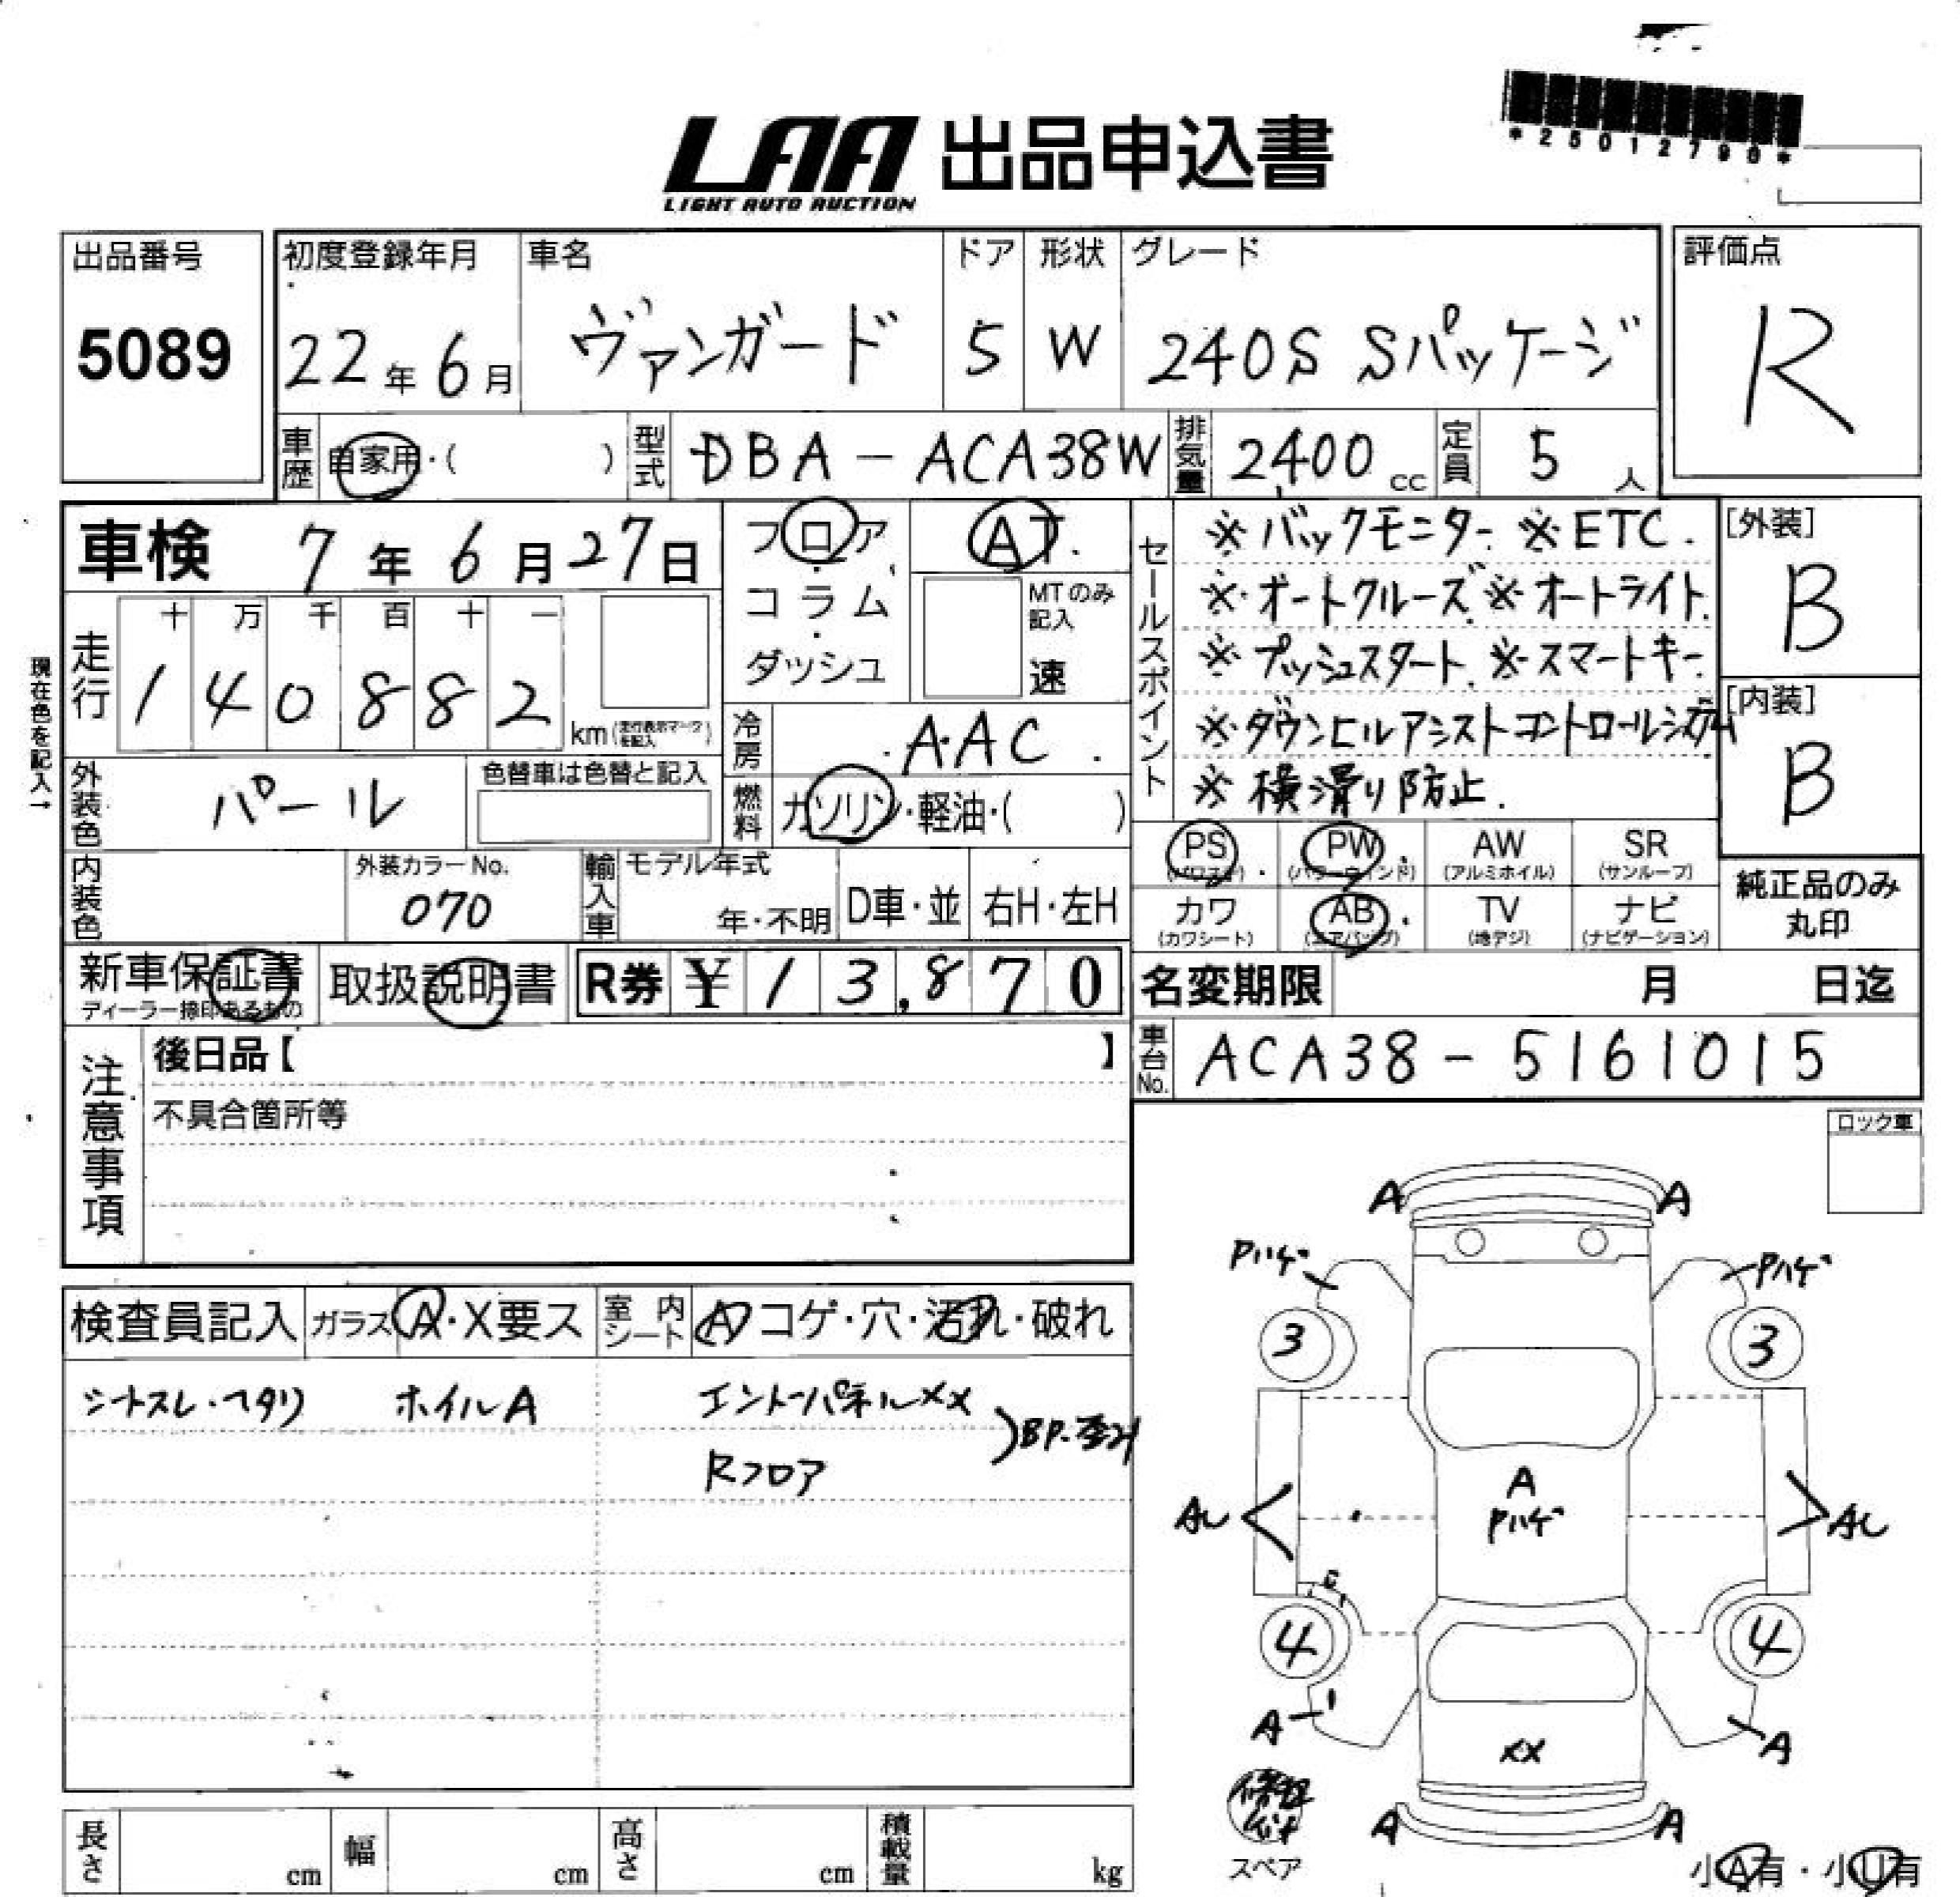 *25012790*
LAA 出品申込書
LIGHT AUTO AUCTION
出品番号
5089
初度登録年月
22年6月
車名
ヴァンガード
ドア
5
形状
W
グレード
240S Sパッケージ
評価点
R
車歴
自家用・( )
型式
DBA-ACA38W
排気量
2400cc
定員
5人
車検 7年6月27日
フロア・コラム・ダッシュ
AT
MTのみ記入
速
セールスポイント
※バックモニター ※ETC.
※オートクルーズ ※オートライト.
※プッシュスタート. ※スマートキー.
※ダウンヒルアシストコントロールシステム
※横滑り防止.
[外装]
B
[内装]
B
現在色を記入→
走行
十 万 千 百 十 一
1 4 0 8 8 2
km(走行表示マークを記入)
冷房
AAC
外装色
パール
色替車は色替と記入
燃料
ガソリン・軽油・( )
内装色
外装カラーNo.
070
輸入車
モデル年式
年・不明
D車・並
右H・左H
PS
(パワステ)
PW
(パワーウインド)
AW
(アルミホイル)
SR
(サンルーフ)
カワ
(カワシート)
AB
(エアバッグ)
TV
(地デジ)
ナビ
(ナビゲーション)
純正品のみ
丸印
新車保証書
ディーラー捺印あるもの
取扱説明書
R券 ¥13,870
名変期限 月 日迄
車台No.
ACA38-5161015
注意事項
後日品【 】
不具合箇所等
ロック車
検査員記入
ガラス A・X要ス
室内シート A コゲ・穴・汚れ・破れ
シートスレ・ヘタリ ホイルA エンドパネルXX
Rフロア
A A
Pハゲ Pハゲ
3 3
A
Pハゲ
4 4
A A
XX
修理
キット
スペア
A A
小A有・小U有
長さ cm
幅 cm
高さ cm
積載量 kg